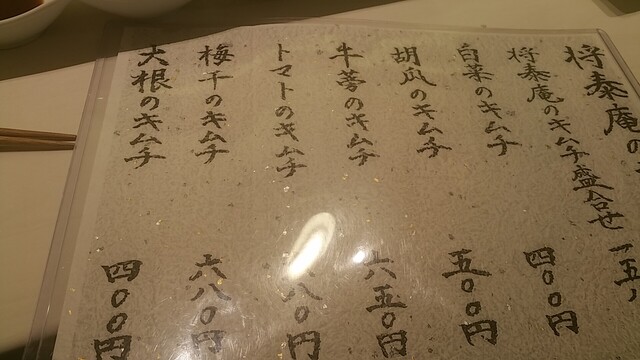 将泰庵の
将泰庵のキムチ盛合せ 一五
白菜のキムチ 四〇〇円
胡瓜のキムチ 五〇〇円
牛蒡のキムチ 六五〇円
トマトのキムチ 八〇円
梅干のキムチ 六八〇円
大根のキムチ 四〇〇円